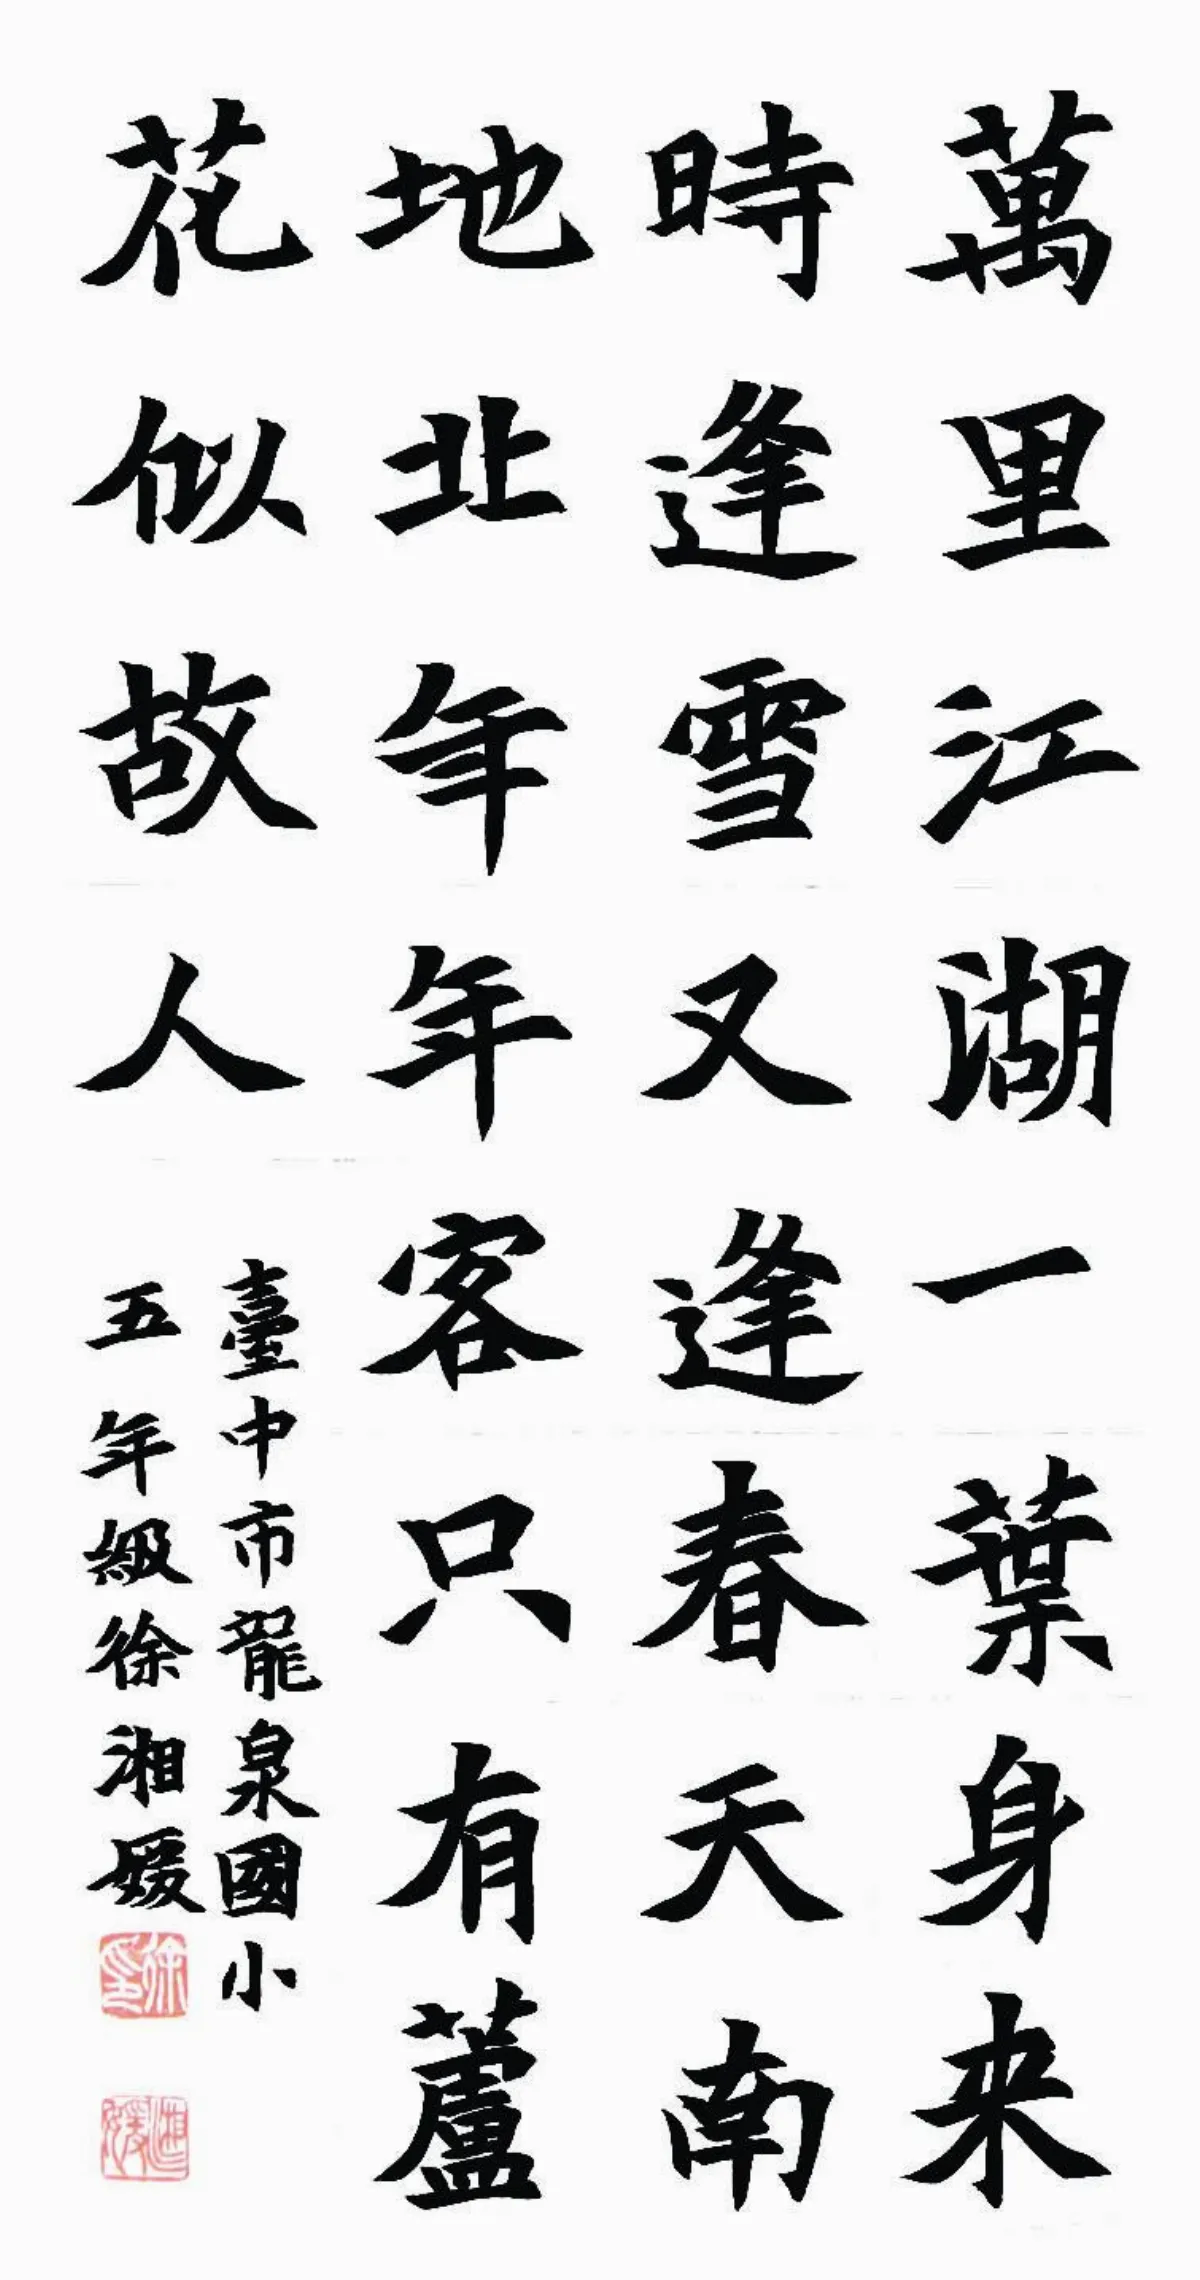 萬里江湖一葉身来
時逢雪又逢春天南
地北年年客只有蘆
花似故人
臺中市龍泉國小
五年級徐湘媛
徐印
湘媛